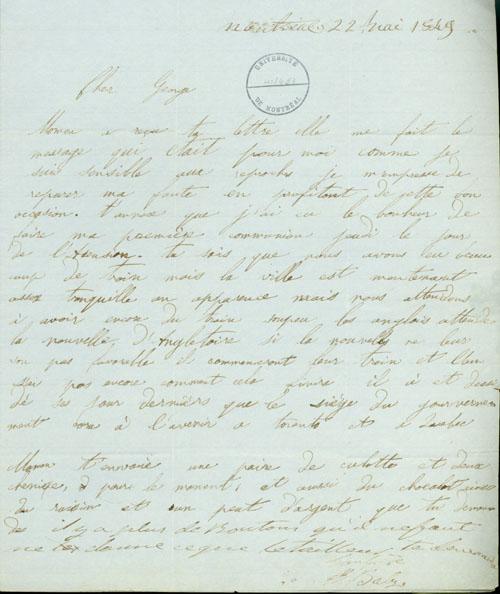 Montréal 22 Mai 1849
UNIVERSITÉ
DE MONTRÉAL
Cher George
Maman a reçu ta lettre elle me fait le
message qui était pour moi comme je
suis sensible aux reproches je m'empresse de
reparer ma faute en profitant de cette bonne
occasion. que j'ai eu le bonheur de
faire ma première communion jeudi le jour
de l'Asension. tu sais que nous avons eu beau
coup de train mais la ville est maintenant
assez tranquille en apparence mais nous attendons
à avoir encore du train les anglais attende
la nouvelle d'Angletaire si la nouvelle ne leur
son pas favorable il commenceront leur train et
pas encore comment cela il à et deci
dé ses jour derniers que le siège du gouverne
ment sera à l'avenir a toronto et a Québec
Maman t'envoie une paire de culotte et deux
chemise, pour le moment, et aussi du chocolat
du raisin et un peut d'argent, que tu deman
de il y a plus de Boutons qu'il ne faut